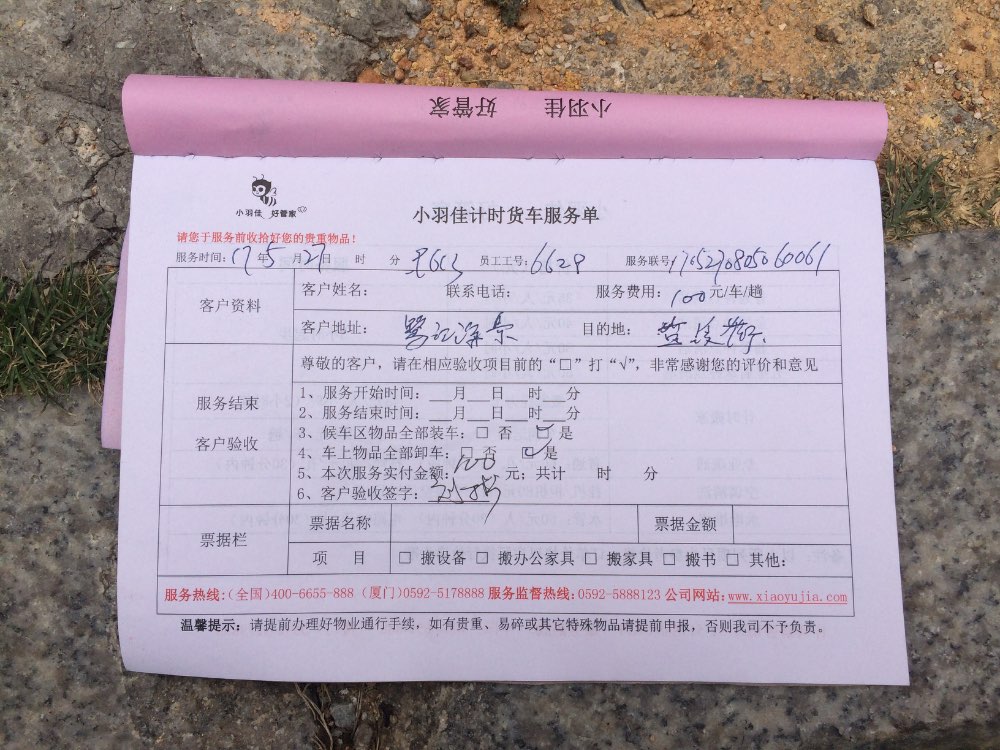 小羽佳 好管家
小羽佳 好管家
小羽佳计时货车服务单
请您于服务前收拾好您的贵重物品!
服务时间: 17年 5月 27日 时 分 员工工号: 6629 服务联号:
客户资料
客户姓名: 联系电话: 服务费用: 100元/车/趟
客户地址: 鹭江海景 目的地:
尊敬的客户, 请在相应验收项目前的“□”打“√”, 非常感谢您的评价和意见
服务结束
客户验收
1、服务开始时间: ___月___日___时___分
2、服务结束时间: ___月___日___时___分
3、候车区物品全部装车: □ 否 ☑ 是
4、车上物品全部卸车: □ 否 ☑ 是
5、本次服务实付金额: 100 元; 共计 时 分
6、客户验收签字:
票据栏
票据名称 票据金额
项 目 □ 搬设备 □ 搬办公家具 □ 搬家具 □ 搬书 □ 其他:
服务热线:(全国)400-6655-888 (厦门)0592-5178888 服务监督热线: 0592-5888123 公司网站: www.xiaoyujia.com
温馨提示: 请提前办理好物业通行手续, 如有贵重、易碎或其它特殊物品请提前申报, 否则我司不予负责。